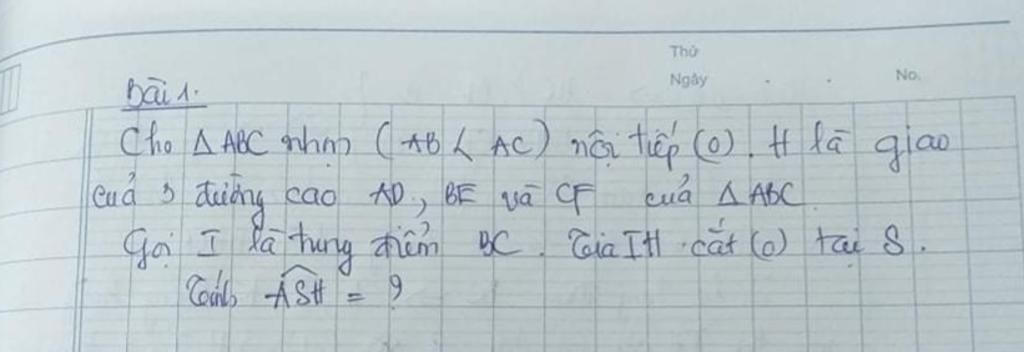 Thứ
Ngày . . No.
Bài 1.
Cho Δ ABC nhọn (AB < AC) nội tiếp (O). H là giao
của 3 đường cao AD, BE và CF của Δ ABC
Gọi I là trung điểm BC. Tia IH cắt (O) tại S.
Tính ASH = ?